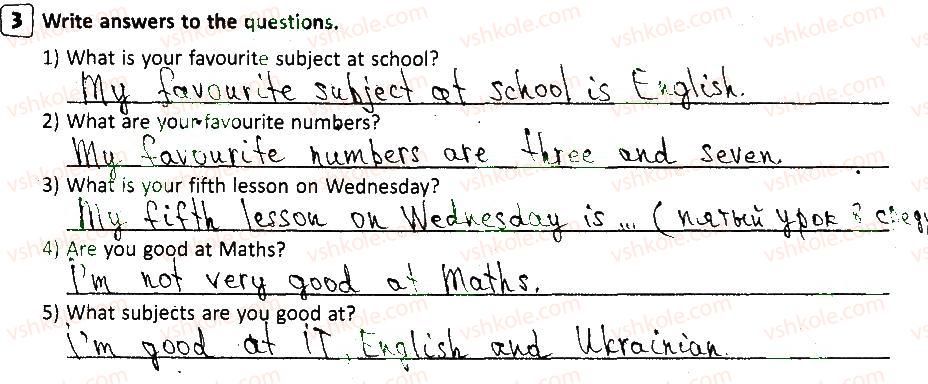 3 Write answers to the questions.
1) What is your favourite subject at school?
My favourite subject at school is English.
2) What are your favourite numbers?
My favourite numbers are three and seven.
3) What is your fifth lesson on Wednesday?
My fifth lesson on Wednesday is ... (пятый урок в
4) Are you good at Maths?
I'm not very good at Maths.
5) What subjects are you good at?
I'm good at IT, English and Ukrainian.